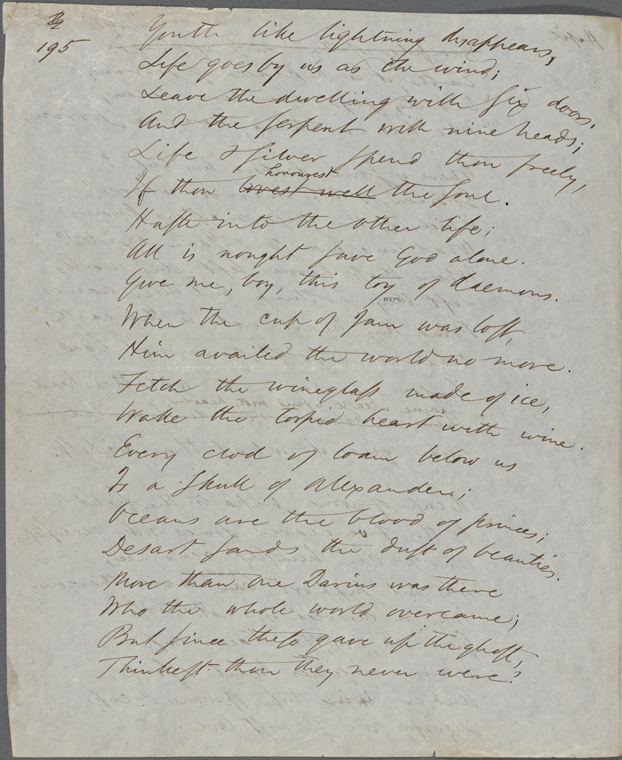 195
Youth like lightning disappears,
Life goes by us as the wind;
Leave the dwelling with six doors,
And the serpent with nine heads;
Life & silver spend thou freely,
honourest
If thou lovest well the soul.
Haste into the other life;
All is nought save God alone.
Give me, boy, this toy of daemons.
When the cup of Jam was lost,
Him availed the world no more.
Fetch the wineglass made of ice,
Wake the torpid heart with wine.
Every clod of loam below us
Is a skull of Alexander;
Oceans are the blood of princes;
Desart sands the dust of beauties.
More than one Darius was there
Who the whole world overcame;
But since these gave up the ghost,
Thinkest thou they never were?